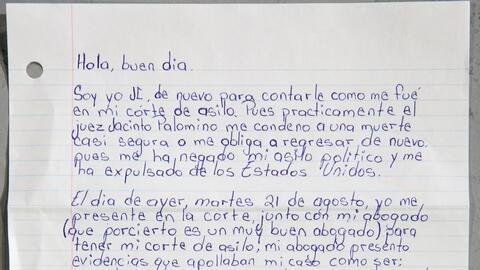 Hola, buen dia.
Soy yo JE, de nuevo para contarle como me fué
en mi córte de asilo. Pues practicamente el
juez Jacinto Palomino me condeno a una muerte
casi segura o me obliga a regresar de nuevo.
pues me ha negado mi asilo politico y me
ha expulsado de los Estados Unidos.
El dia de ayer, martes 21 de agosto, yo me
presente en la corte, junto con mi abogado
(que porcierto es un muy buen abogado) para
tener mi corte de asilo; mi abogado presento
evidencias que apollaban mi caso como ser: